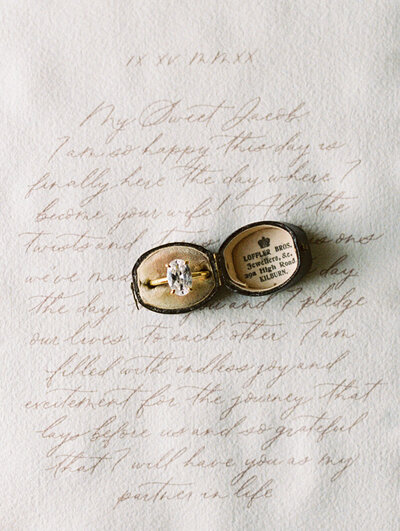 IX XV MMXX
My Sweet Jacob
I am so happy this day is
finally here the day where I
become your wife! All the
twists and
LOFFLER BROS.
Jewellers, &c.
292 High Road
KILBURN.
we've made day
the day and I pledge
our lives to each other I am
filled with endless joy and
excitement for the journey that
lays before us and so grateful
that I will have you as my
partner in life